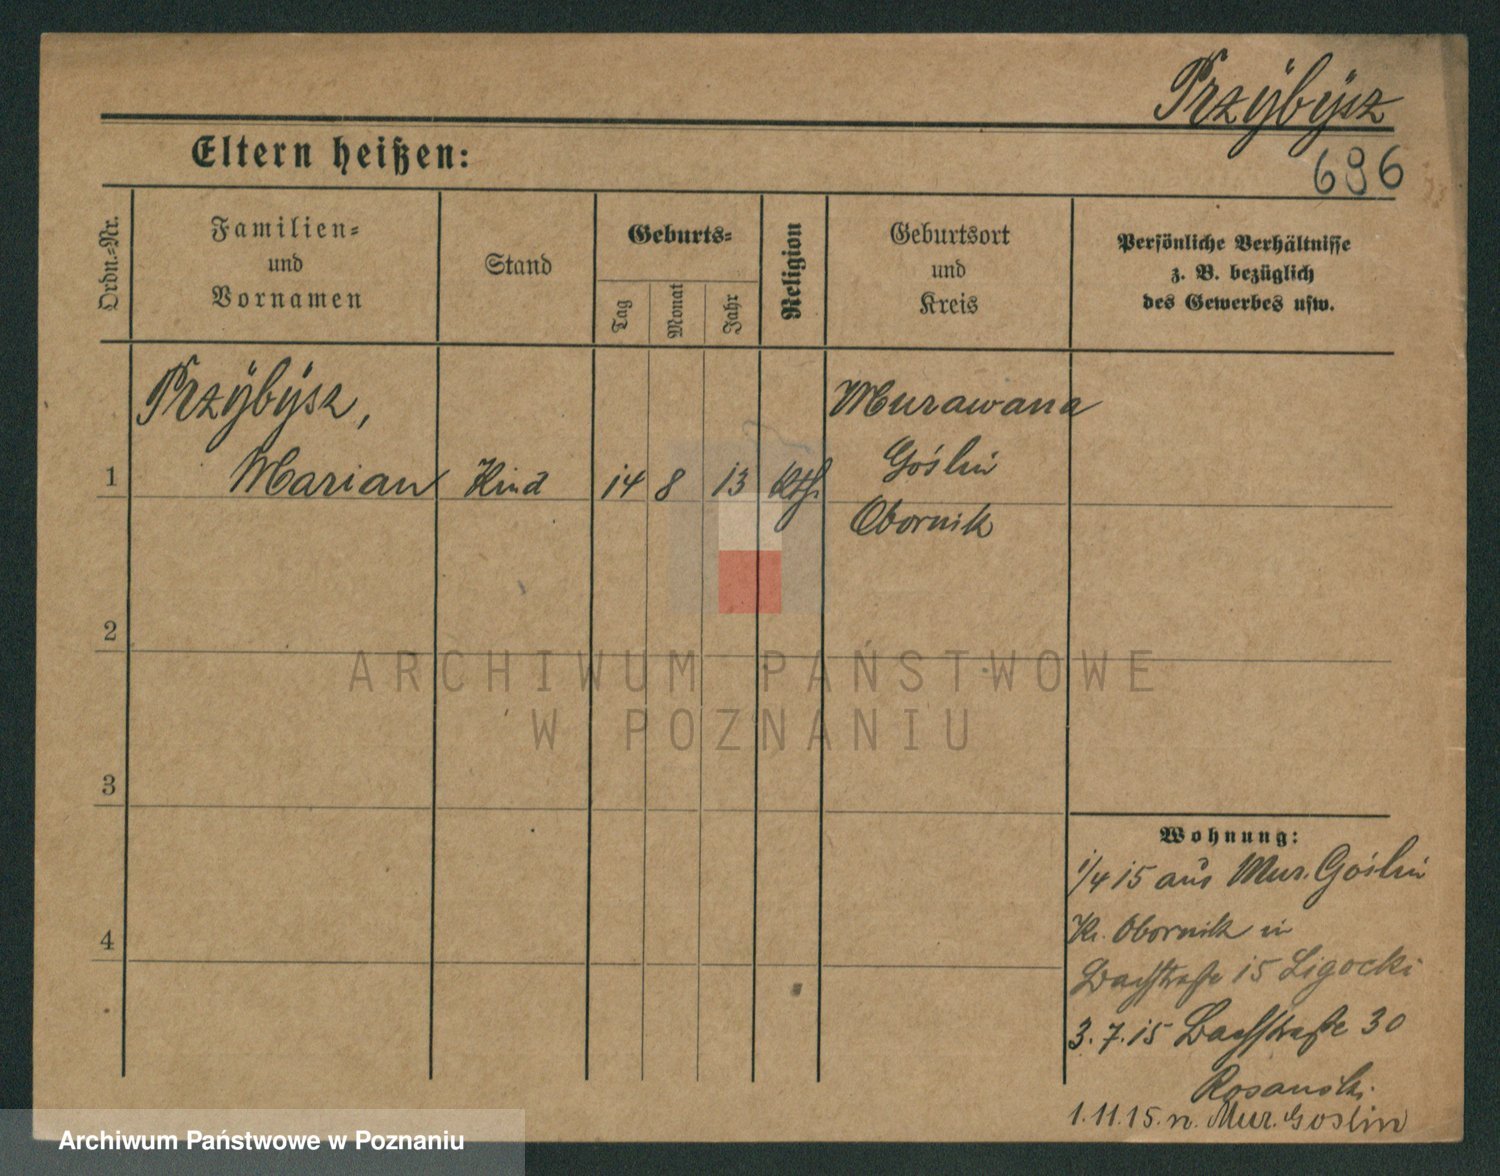 Przÿbÿsz
696
Eltern heißen:
Ordn.-Nr.
Familien-
und
Vornamen
Stand
Geburts-
Tag
Monat
Jahr
Religion
Geburtsort
und
Kreis
Persönliche Verhältnisse
z. B. bezüglich
des Gewerbes usw.
Przÿbÿsz,
Murawana
1 Marian Kind 14 8 13 Kth. Goślin
Obornik
2
ARCHIWUM PAŃSTWOWE
W POZNANIU
3
Wohnung:
1/4 15 aus Mur. Goślin
4
Kr. Obornik in
Bachstraße 15 Ligocki
3.7.15 Bachstraße 30
Rosanski.
1.11.15. n. Mur. Goslin
Archiwum Państwowe w Poznaniu